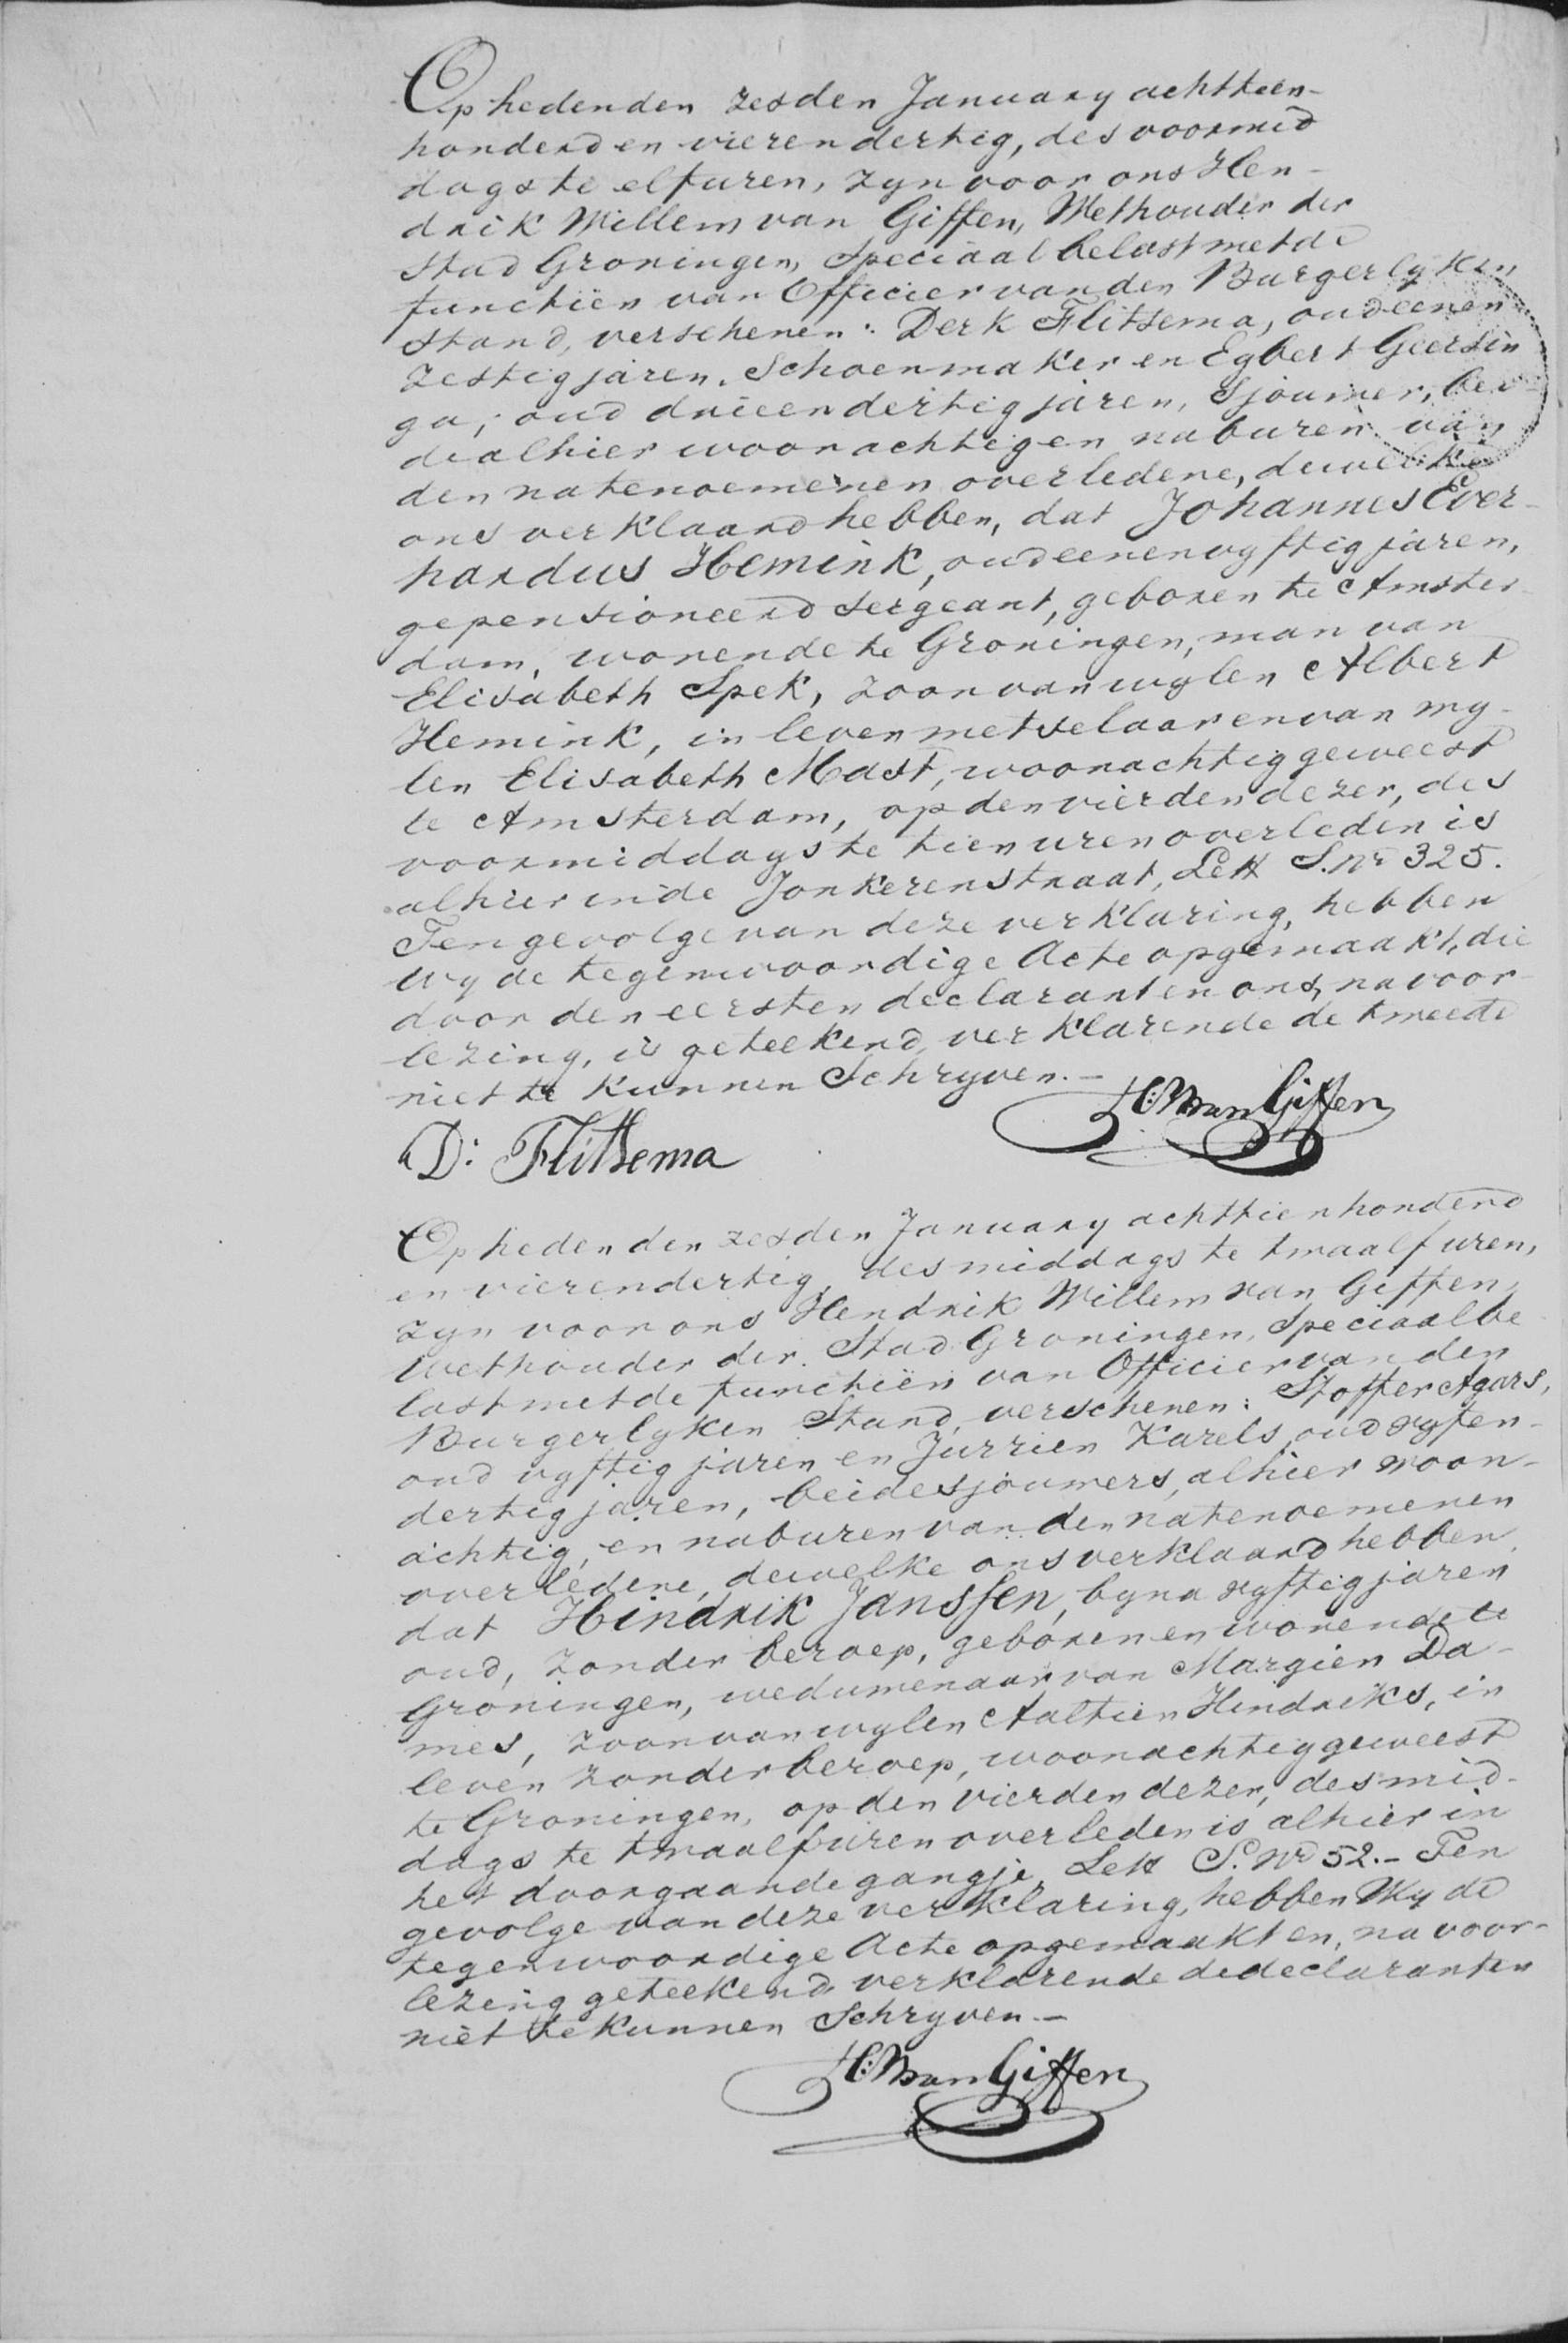 Op heden den zesden January achttien-
honderd en vierendertig, des voormid
dags te elf uren, zyn voor ons Hen-
drik Willem van Giffen, Wethouder der
Stad Groningen, Speciaal belast met de
functiën van Officier van den Burgerlyken
Stand, verschenen: Derk Flitsema, oud eenen
zestig jaren, Schoenmaker en Egbert Geersin
ga, oud drieendertig jaren, Sjouwer, bei
de alhier woonachtig en naburen van
den natenoemenen overledene, dewelke
ons verklaard hebben, dat Johannes Ever-
hardus Hemink, oud eenenvyftig jaren,
gepensioneerd Sergeant, geboren te Amster-
dam, wonende te Groningen, man van
Elisabeth Spek, zoon van wylen Albert
Hemink, in leven metselaar en van wy-
len Elisabeth Mast, woonachtig geweest
te Amsterdam, op den vierden dezer, des
voormiddags te tien uren overleden is
alhier in de Jonkerenstraat, Lett S. No 325.
Ten gevolge van deze verklaring, hebben
wy de tegenwoordige Acte opgemaakt, die
door den eersten declarant en ons, na voor-
lezing, is geteekend, verklarende de tweede
niet te kunnen Schryven.-
D: Flitsema
H:W van Giffen
Op heden den zesden January achttienhonderd
en vierendertig, des middags te twaalf uren,
zyn voor ons Hendrik Willem van Giffen,
Wethouder der Stad Groningen, Speciaal be
last met de functiën van Officier van den
Burgerlyken Stand, verschenen: Stoffer Agars,
oud vyftig jaren en Jurrien Karels, oud vyfen-
dertig jaren, beide sjouwers, alhier woon-
achtig, en naburen van den natenoemenen
overledene, dewelke ons verklaard hebben,
dat Hindrik Janssen, byna vyftig jaren
oud, zonder beroep, geboren en wonende te
Groningen, weduwenaar van Margien Da-
mes, zoon van wylen Aaltien Hindriks, in
leven zonder beroep, woonachtig geweest
te Groningen, op den vierden dezer, des mid-
dags te twaalf uren overleden is alhier in
het doorgaande gangje, Lett S. No 52.- Ten
gevolge van deze verklaring, hebben Wy de
tegenwoordige Acte opgemaakt en, na voor-
lezing geteekend, verklarende de declaranten
niet te kunnen Schryven.-
H:W van Giffen